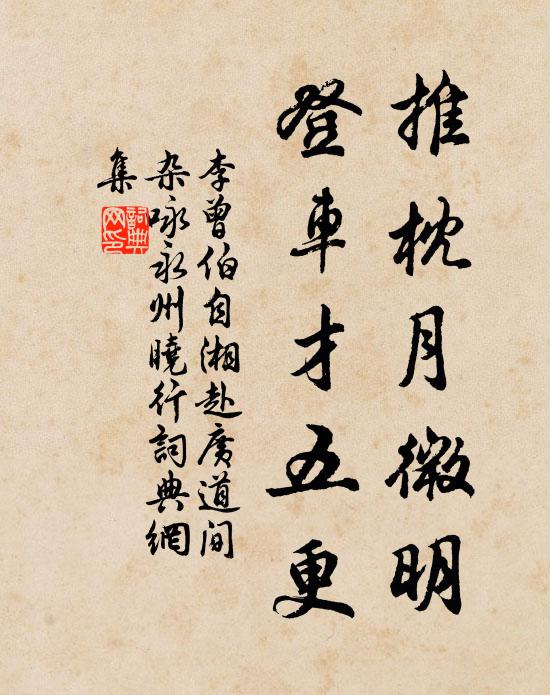 推枕月微明
登車才五更
李曾伯自湘赴广道间
杂咏永州曉行詞典網
集
詞典
网印